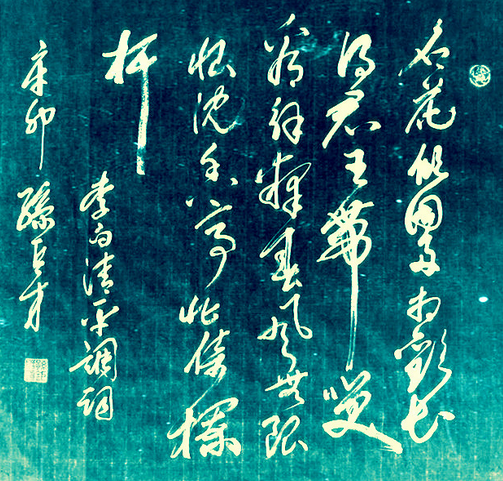 名花傾國兩相歡長
得君王帶笑
看解釋春風無限
恨沈香亭北倚欄
杆
李白清平調詞
辛卯 孫巨才